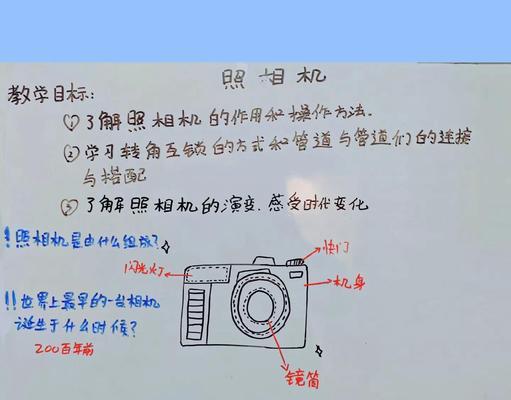 照相机
教学目标:
① 了解照相机的作用和操作方法.
② 学习转角互锁的方式和管道与管道们的连接
与搭配
③ 了解照相机的演变.感受时代变化
! 照相机是由什么组成?
闪光灯
快门
机身
!! 世界上最早的一台相机
诞生于什么时候?
200百年前
镜筒